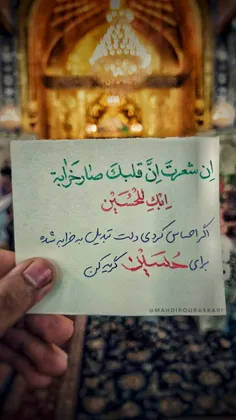 إن شعرتَ إنَّ قلبكَ صار خَرابة
اِبكِ لِلحُسَین
اگر احساس کردی دلت تبدیل به خرابه شده
برای حُسَین گریه کن
@MAHDIPOURASKARI